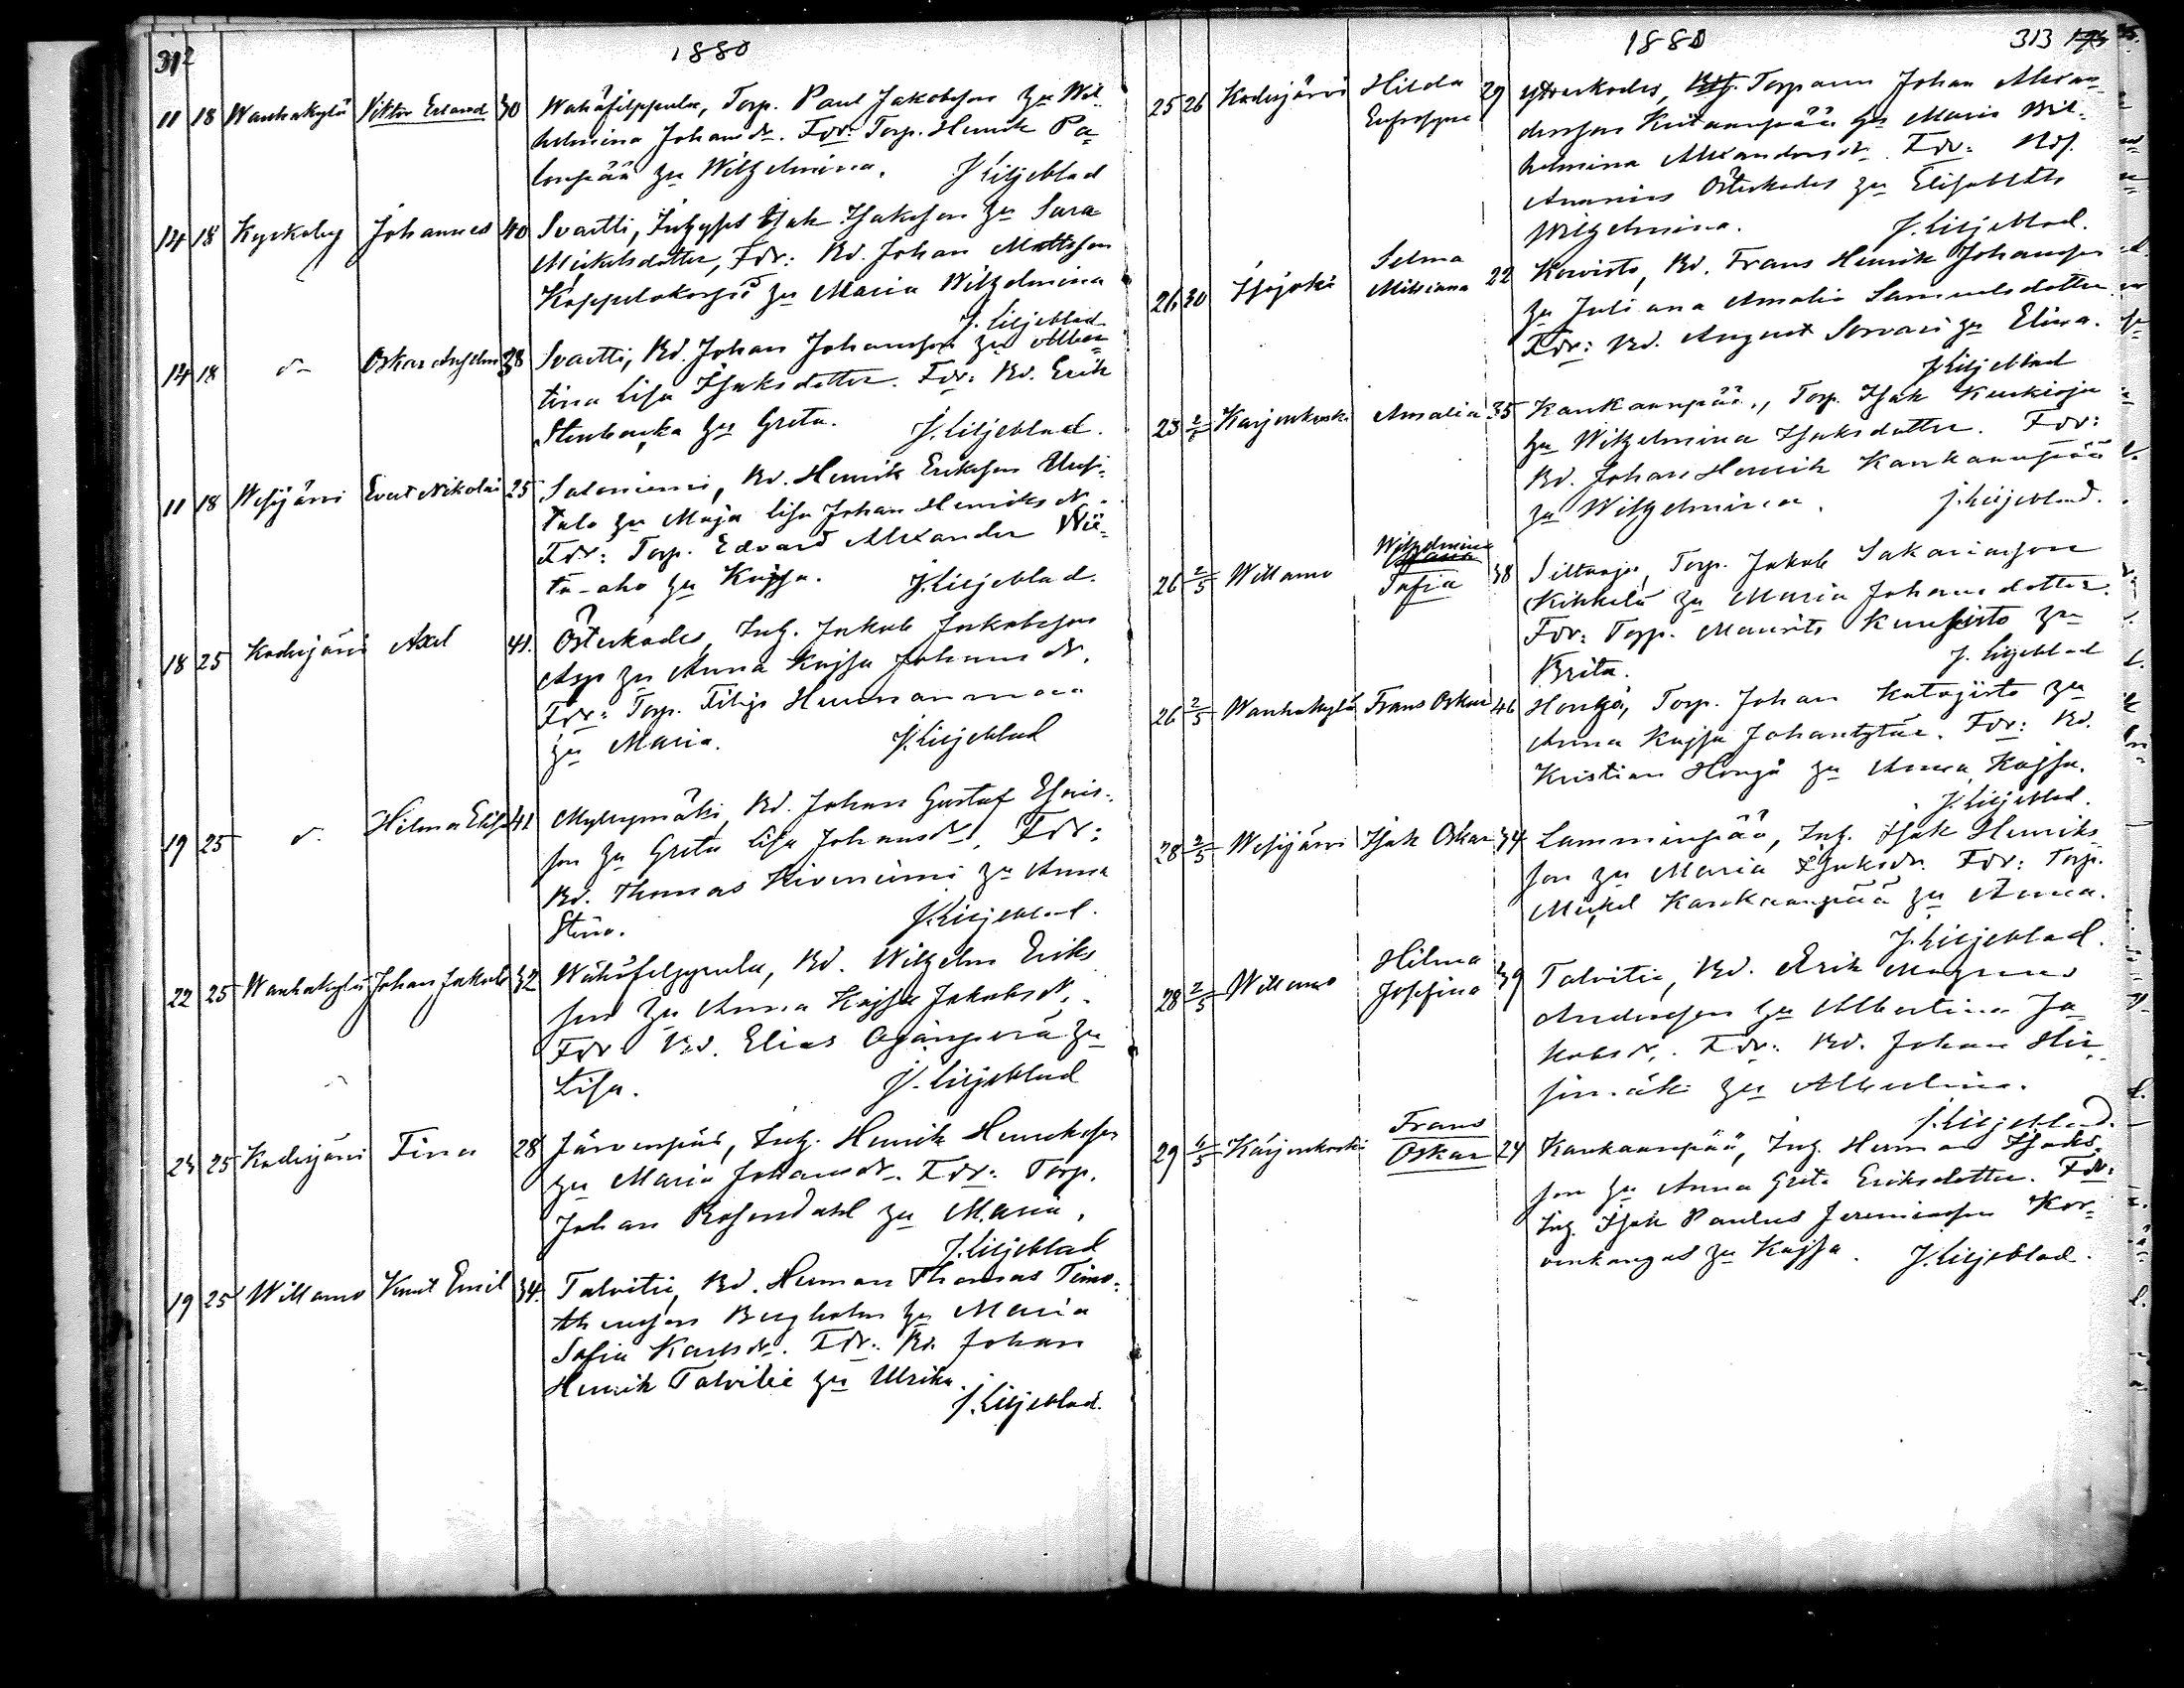 312
1880
11 18 Wanhakylä Viktor Erland 30 Wähäfilppula, Torp. Paul Jakobsson Hu Wil-
helmina Johansdr. Fdr: Torp. Henrik Pa-
lonpää Hu Wilhelmina. J. Liljeblad
14 18 Kyrkoby Johannes 40 Svartti, Inhyses Isak Isaksson Hu Sara
Mickelsdotter, Fdr: Bd. Johan Mattsson
Hu Maria Wilhelmina
J. Liljeblad
14 18 d:o Oskar Anselm 38 Svartti, Bd. Johan Johansson Hu Alber-
tina Lisa Isaksdotter. Fdr: Bd. Erik
Stenbacka Hu Greta. J. Liljeblad.
11 18 Wesijärvi Evert Nikolai 25 Saloniemi, Bd. Henrik Eriksson Uusi-
talo Hu Maja Lisa Johan Henriksdr.
Fdr: Torp. Edvard Alexander Wii-
ta-aho Hu Kajsa. J. Liljeblad.
18 25 Kodesjärvi Axel 41. Österkodes, Inh. Jakob Jakobsson
Asp Hu Anna Kajsa Johansdr.
Fdr: Torp. Filip
Hu Maria. J. Liljeblad
19 25 d:o Hilma Elisa 41 Myllymäki, Bd. Johan Gustaf Esais-
son Hu Greta Lisa Johansdr. Fdr:
Bd. Thomas Kiviniemi Hu Anna
Stina. J. Liljeblad.
22 25 Wanhakylä Johan Jakob 32 Wähäfilppula, Bd. Wilhelm Eriks
son Hu Anna Kajsa Jakobsdr.
Fdr Bd. Elias Ojanperä Hu
Lisa. J. Liljeblad
23 25 Kodesjärvi Fina 28 Järvenpää, Inh. Henrik Henriksson
Hu Maria Johansdr. Fdr: Torp.
Johan Rosendahl Hu Maria.
J. Liljeblad
19 25 Willamo Knut Emil 34. Talvitie, Bd. Herman Thomas Timo-
theusson Bergholm Hu Maria
Sofia Karlsdr. Fdr: Bd. Johan
Henrik Talvitie Hu Ulrika.
J. Liljeblad.
1880
313
25 26 Kodesjärvi Hilda Eufrosyne 29 Ytterkodes, Torparen Johan Alexan-
dersson Hu Maria Wil-
helmina Alexandersdr. Fdr: Ndf.
Ananias Österkodes Hu Elisabeth
Wilhelmina. J. Liljeblad.
26 30 Isojoki Selma Miliana 22 Koivisto, Bd. Frans Henrik Johansson
Hu Juliana Amalia Samuelsdotter
Fdr: Bd. August Sorvari Hu Elina.
J. Liljeblad
23 2/5 Karjenkoski Amalia 35 Kankaanpää, Torp. Isak Keskioja
Hu Wilhelmina Isaksdotter. Fdr:
Bd. Johan Henrik Kankaanpää
Hu Wilhelmina. J. Liljeblad.
26 2/5 Willamo Wilhelmina Sofia 38 Siltaoja, Torp. Jakob Sakariasson
Kikkelä Hu Maria Johansdotter.
Fdr: Torp. Maurits Kuusisto Hu
Brita. J. Liljeblad
26 2/5 Wanhakylä Frans Oskar 46 Honkjo, Torp. Johan Katajisto Hu
Anna Kajsa Johantytär. Fdr: Bd.
Kristian Hongo Hu Anna Kajsa.
J. Liljeblad.
28 2/5 Wesijärvi Isak Oskar 34 Lamminpää, Inh. Isak Henriks
son Hu Maria Isaksdr. Fdr: Torp.
Mickel Kankaanpää Hu Anna.
J. Liljeblad.
28 2/5 Willamo Hilma Josefina 39 Talvitie, Bd. Erik Magnus
Andersson Hu Albertina Ja-
kobsdr. Fdr: Bd. Johan Hii-
Hu Albertina.
J. Liljeblad.
29 6/5 Karjenkoski Frans Oskar 24 Kankaanpää, Inh. Herman Isaks
son Hu Anna Greta Eriksdotter. Fdr:
Inh. Isak Paulus Jeremiasson Kor-
venkangas Hu Kajsa. J. Liljeblad.